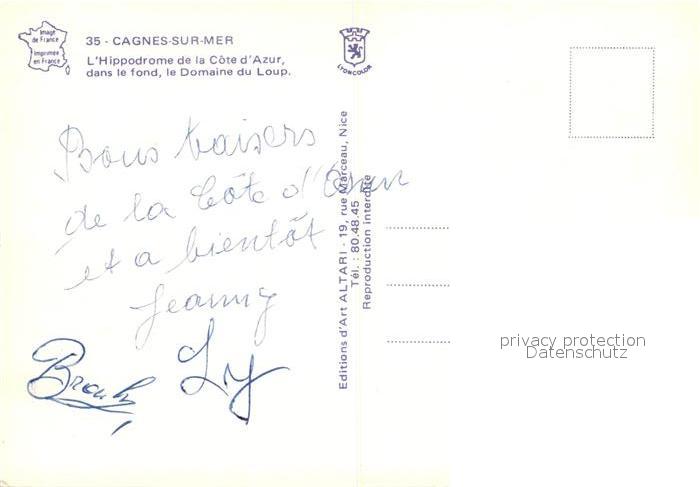 Image
de France
Imprimée
en France
35 - CAGNES-SUR-MER
L'Hippodrome de la Côte d'Azur,
dans le fond, le Domaine du Loup.
LYONCOLOR
Bons baisers
de la Côte d'Azur
et a bientôt
Jeanny
Editions d'Art ALTARI - 19, rue Marceau, Nice
Tél. : 80.48.45
Reproduction interdite
privacy protection
Datenschutz